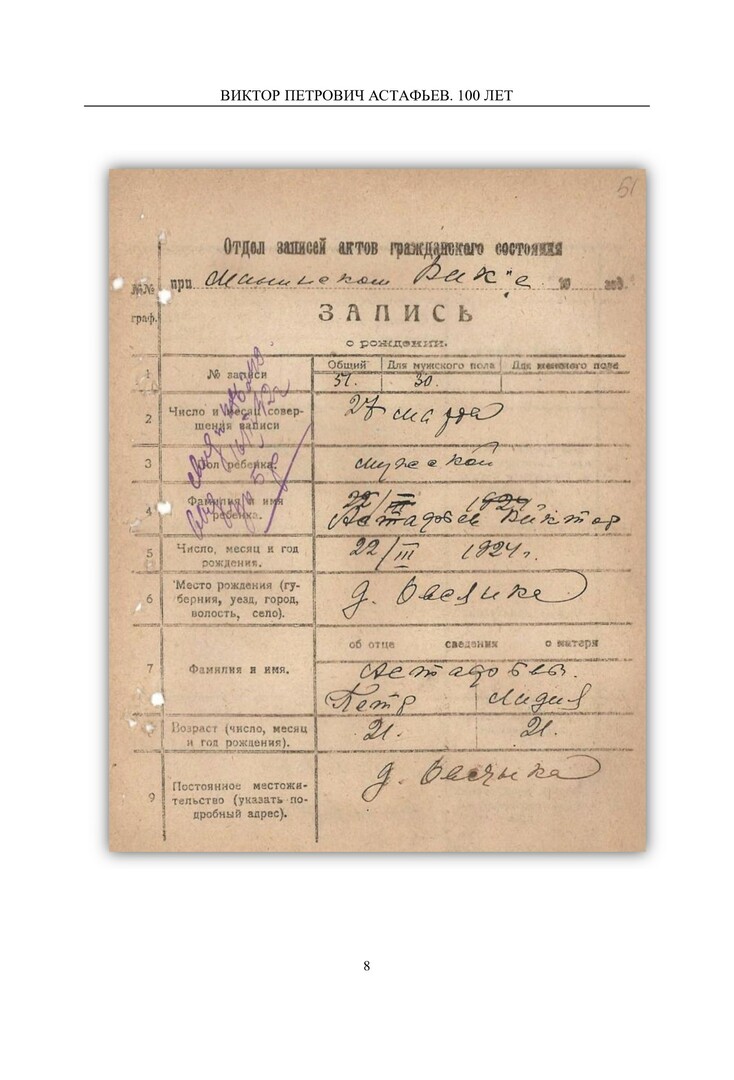 ВИКТОР ПЕТРОВИЧ АСТАФЬЕВ. 100 ЛЕТ
51
Отдел записей актов гражданского состояния
при Манинском Вик'е 19 год.
№№ граф.
ЗАПИСЬ
о рождении.
1 № записи Общий Для мужского пола Для женского пола
51. 30.
2 Число и месяц совер-
шения записи 27 марта
3 Пол ребенка. мужской
4 Фамилия и имя
ребенка. 22/III 1924
Астафьев Виктор
5 Число, месяц и год
рождения. 22/III 1924 г.
6 Место рождения (гу-
берния, уезд, город,
волость, село). д. Овсянка
об отце сведения о матери
7 Фамилия и имя. Астафьевы.
Петр Лидия
Возраст (число, месяц
и год рождения). 21. 21.
9 Постоянное местожи-
тельство (указать по-
дробный адрес). д. Овсянка
8